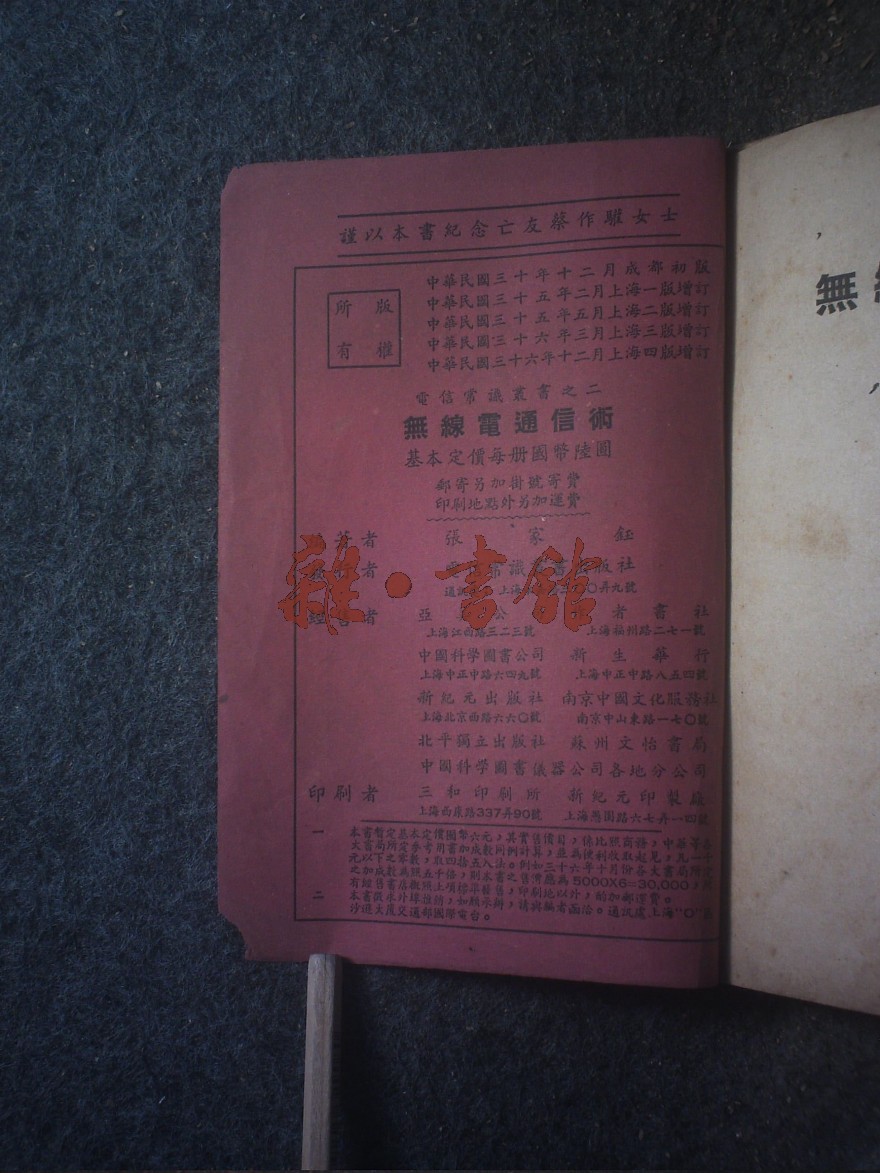 謹以本書紀念亡友蔡作驩女士
中華民國三十年十二月成都初版
中華民國三十五年二月上海一版增訂
中華民國三十五年五月上海二版增訂
中華民國三十六年三月上海三版增訂
中華民國三十六年十二月上海四版增訂
版權所有
電信常識叢書之二
無線電通信術
基本定價每册國幣陸圓
郵寄另加掛號寄費
印刷地點外另加運費
著者 張家鈺
者 識 版社
上海 弄九號
雜·書館
者 亞 公 者書社
上海江西路三二三號 上海福州路二七一號
中國科學圖書公司 新生華行
上海中正中路六四九號 上海中正中路八五四號
新紀元出版社 南京中國文化服務社
上海北京西路六六〇號 南京中山東路一七〇號
北平獨立出版社 蘇州文怡書局
中國科學圖書儀器公司各地分公司
印刷者 三和印刷所 新紀元印製廠
上海西康路337弄90號 上海愚園路六七弄一四號
一 本書暫定基本定價國幣六元,其實售價目,係比照商務,中華等各
大書局所定參考用書加成數同例計算,並為便利收取起見,凡一千
元以下之零數,取四捨五入法。例如三十六年十月份各大書局所定
之加成數為照五千倍,則本書之售價應為5000X6=30,000,所
有經售書店概照上項標準發售,印刷地以外,酌加郵運費。
二 本書徵求外埠推銷,如願承辦,請與編者函洽。通訊處上海"〇"
沙遜大廈交通部國際電台。
無